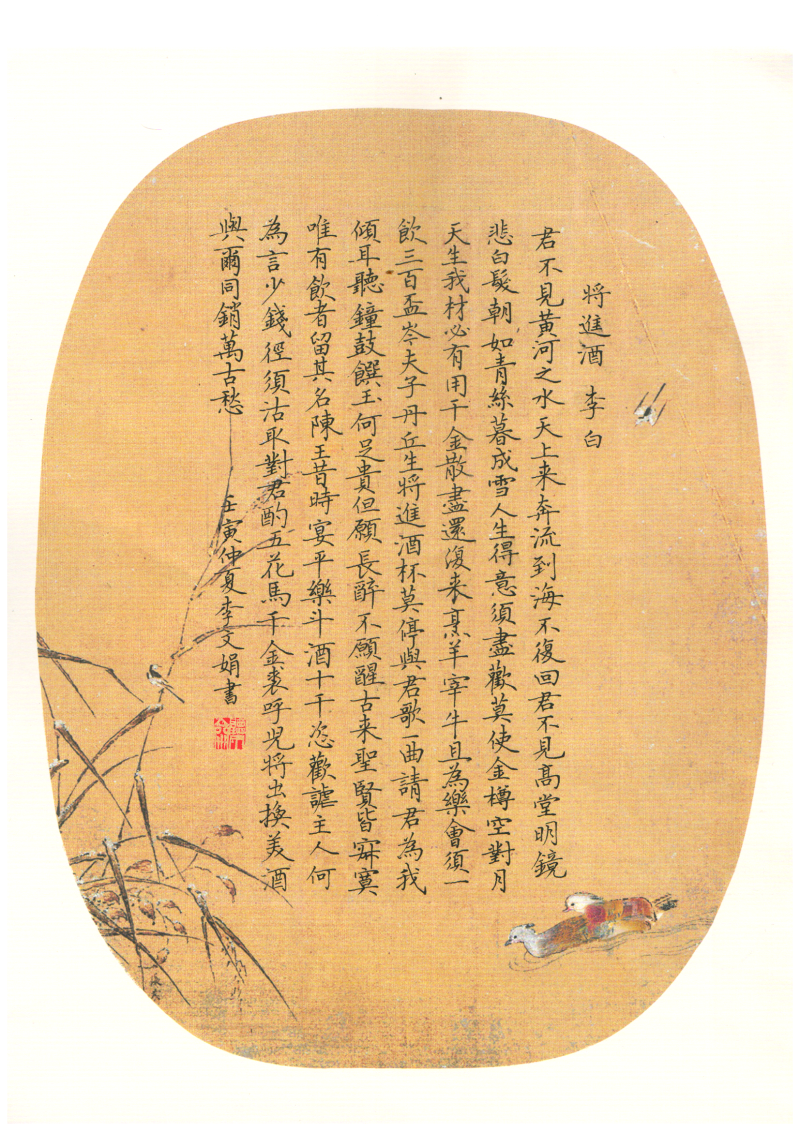 將進酒 李白
君不見黃河之水天上来奔流到海不復回君不見高堂明鏡
悲白髮朝如青絲暮成雪人生得意須盡歡莫使金樽空對月
天生我材必有用千金散盡還復来烹羊宰牛且為樂會須一
飲三百盃岑夫子丹丘生将進酒杯莫停與君歌一曲請君為我
傾耳聽鐘鼓饌玉何足貴但願長醉不願醒古来聖賢皆寂寞
唯有飲者留其名陳王昔時宴平樂斗酒十千恣歡謔主人何
為言少錢徑須沽取對君酌五花馬千金裘呼兒将出換美酒
與爾同銷萬古愁
壬寅仲夏李文娟書